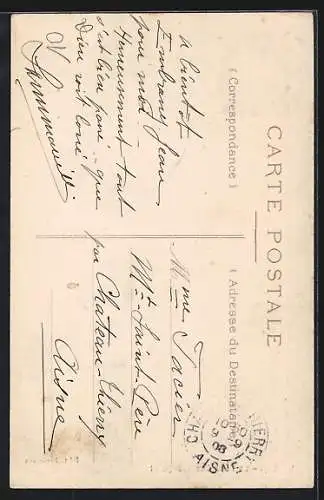 CARTE POSTALE
( Correspondance )
( Adresse du Destinataire )
à bientôt
Embrassez Jean
pour moi
Heureusement tout
s'est bien passé — que
Dieu soit loué
Mme Tacier
Mt Saint-Père
par Chateau-Thierry
Aisne
CH
THIERRY
AISNE